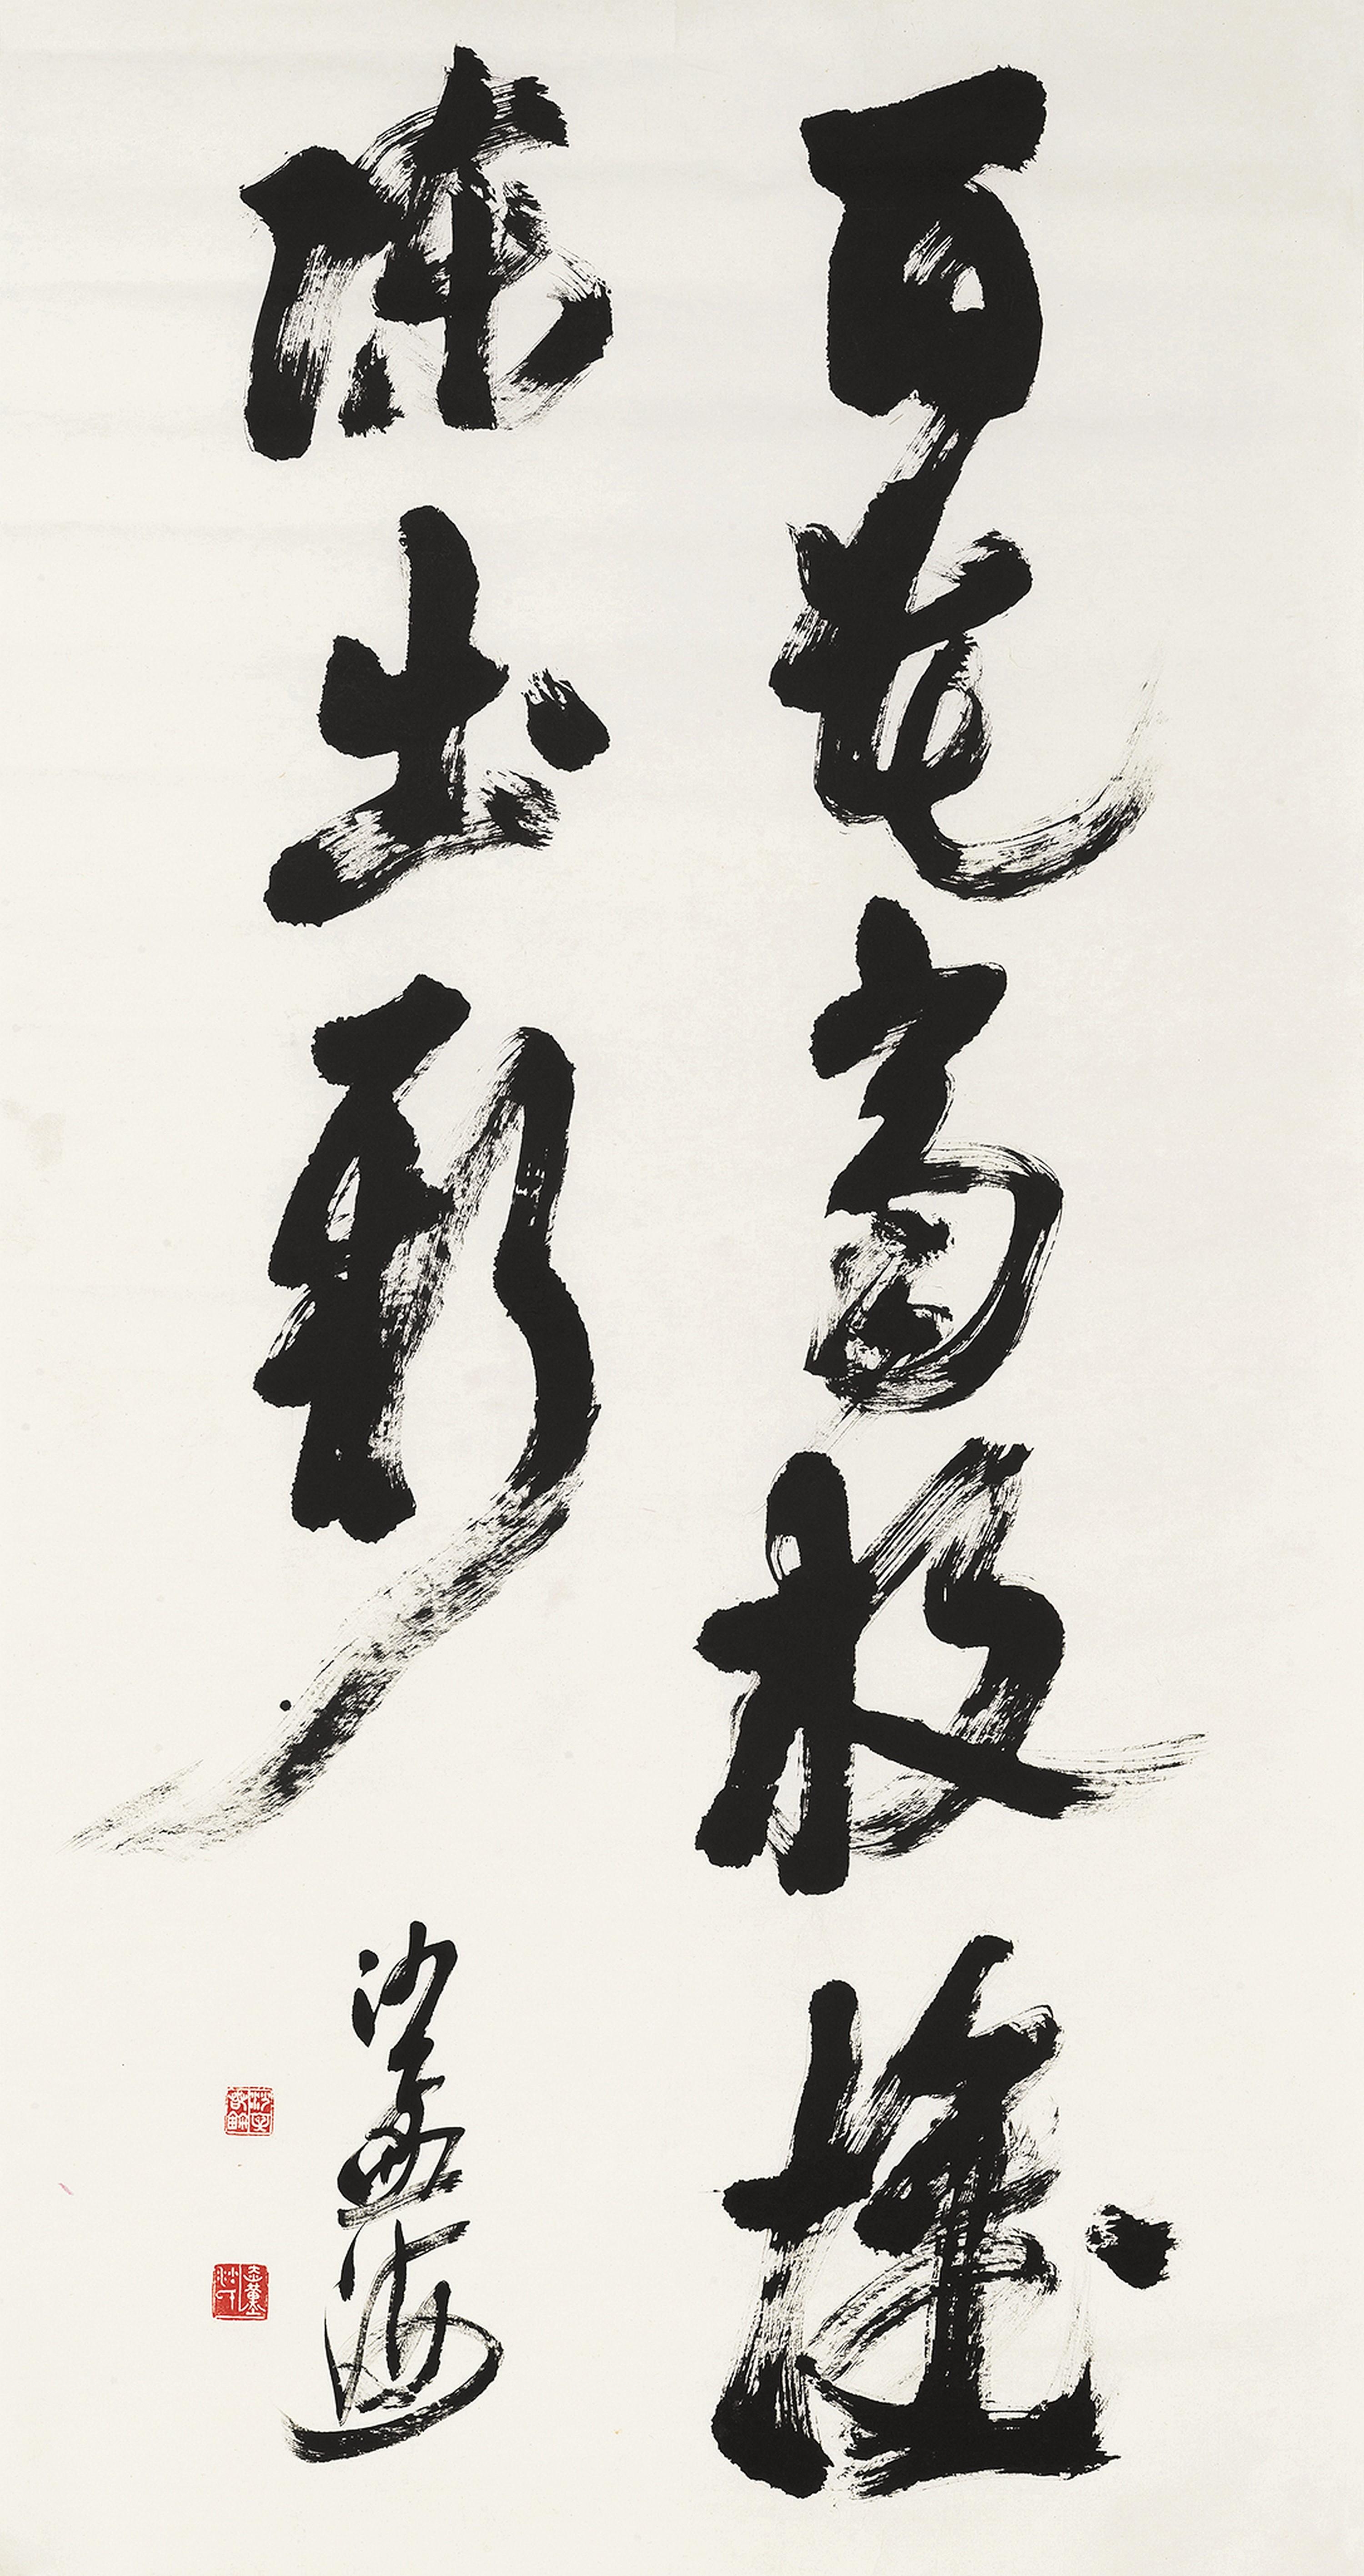 百花齊放推
陳出新
沙孟海